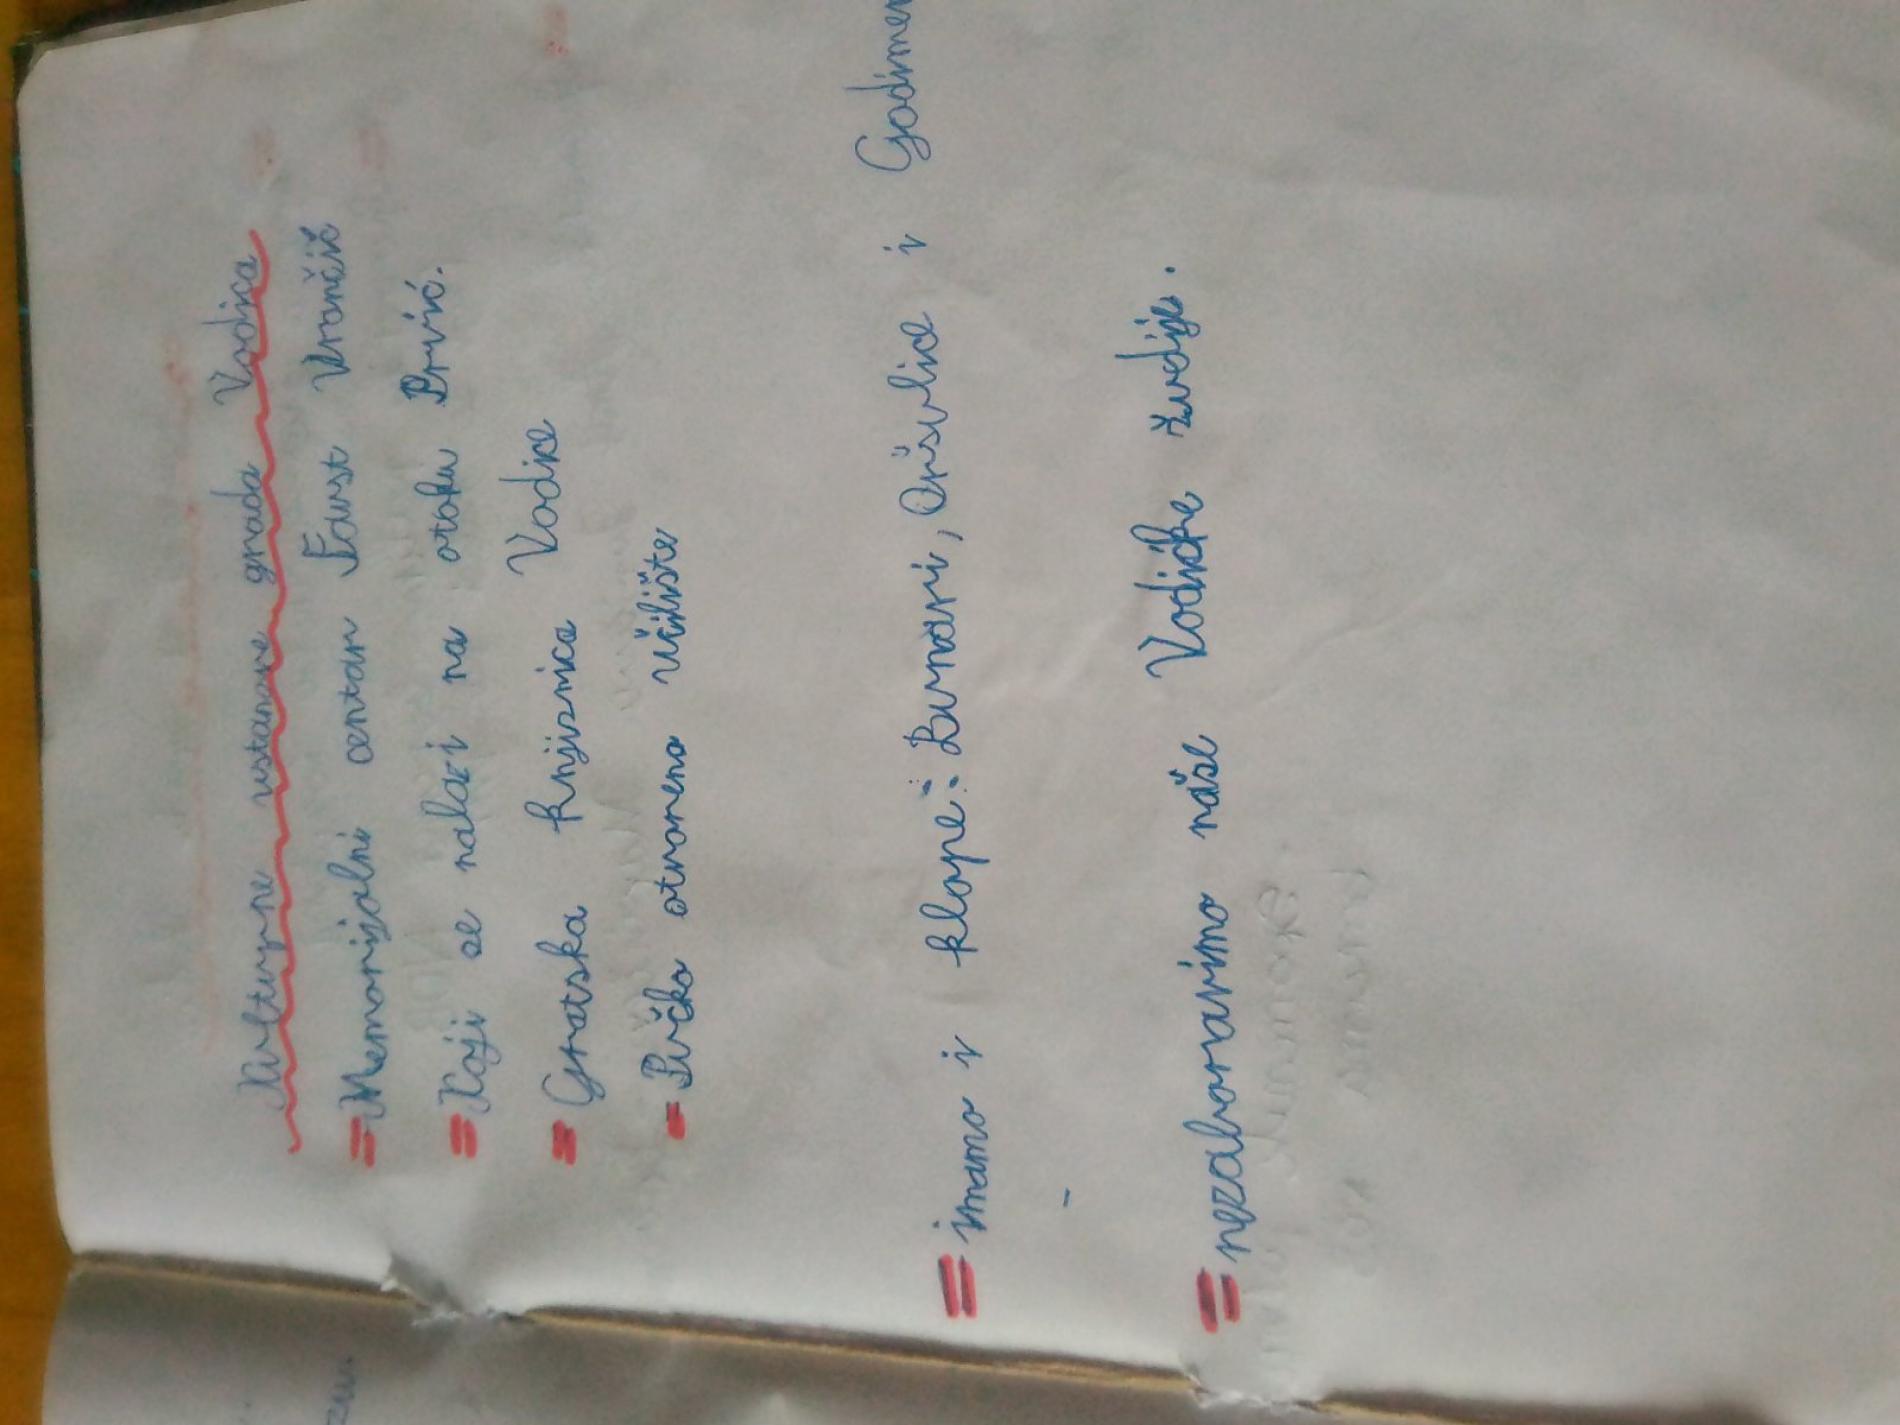 Kulturne ustanove grada Vodica
= Memorijalni centar Faust Vrančić
= Koji se nalazi na otoku Prvić.
= Gratska knjiznica Vodice
= Pučko otvoreno učilište
= imamo i klape: Bunari, Oršulice i Godimen
-
= nezaboravimo naše Vodičke žudije.
zu.